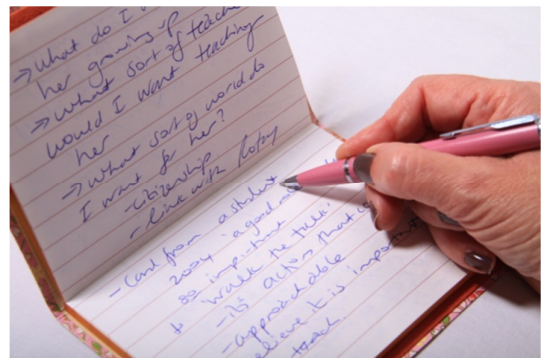 → What do I
her growing up
→ What sort of teache
would I want teaching
her
→ What sort of world do
I want for her?
- citizenship
- link with Rotary
- Card from a student
2004 'a good
so important
to 'walk the talk'
- it's actions that co
- approachable
elieve it is importan
teach.